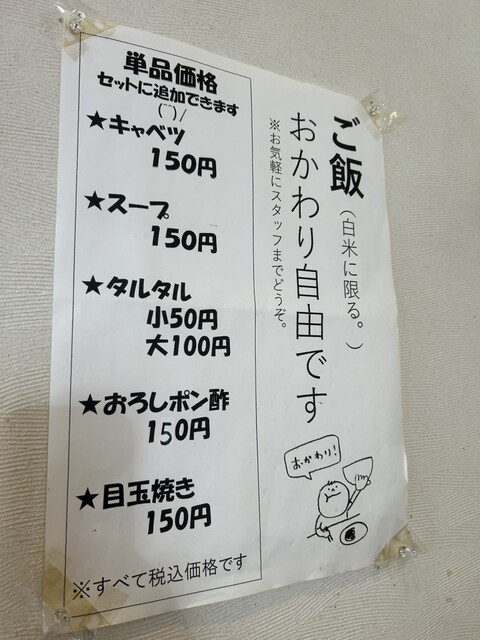 ご飯(白米に限る。)
おかわり自由です
※お気軽にスタッフまでどうぞ。
おかわり!
単品価格
セットに追加できます
(^^)/
★キャベツ
150円
★スープ
150円
★タルタル
小50円
大100円
★おろしポン酢
150円
★目玉焼き
150円
※すべて税込価格です